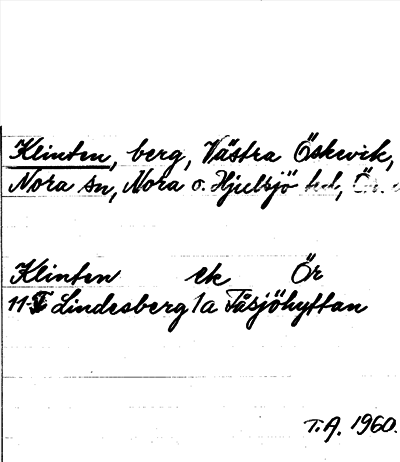 Klinten, berg, Västra Öskevik,
Nora sn, Nora o. Hjulsjö hd, Ör.
Klinten ek Ör
11 Lindesberg 1a Tåsjöhyttan
T.A. 1960.